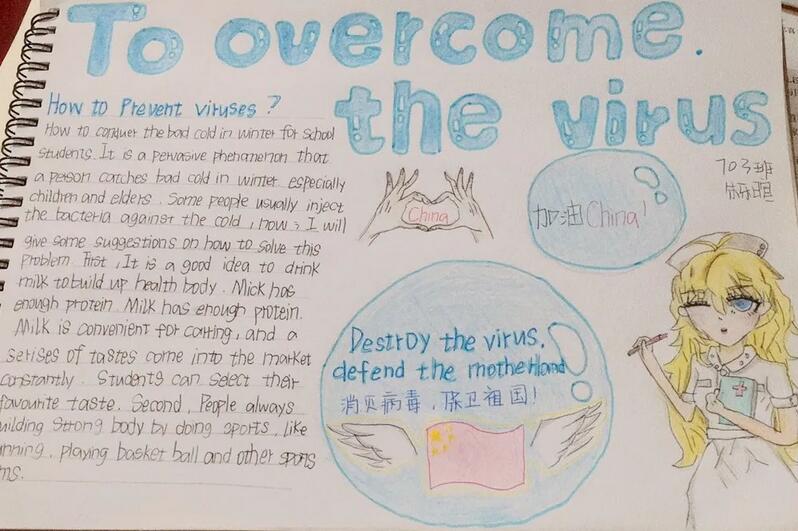 To overcome.
the virus
703班
How to Prevent viruses?
How to conquer the bad cold in winter for school
students. It is a pervasive phenomenon that
a person catches bad cold in winter especially
children and elders. Some people usually inject
the bacteria against the cold, now, I will
give some suggestions on how to solve this
problem. First, It is a good idea to drink
milk to build up health body. Mick has
enough protein. Milk has enough protein.
Milk is convenient for carring, and a
serises of tastes come into the market
constantly. Students can select their
favourite taste. Second, People always
uilding strong body by doing sports, like
nning, playing basket ball and other sports
ms.
China
加油China!
Destroy the virus,
defend the motherland
消灭病毒,保卫祖国!